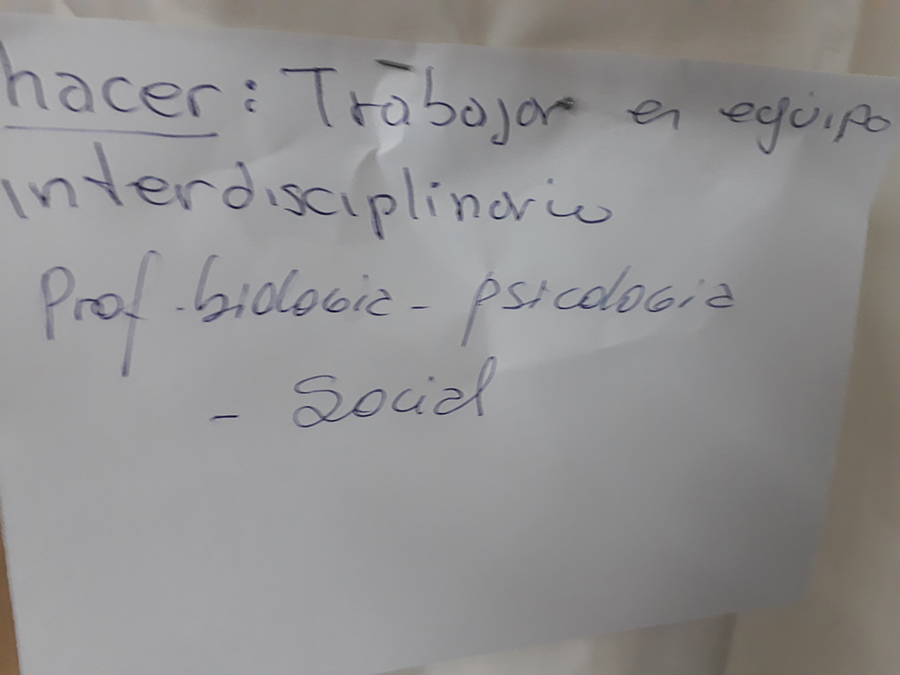 hacer: Trabajar en equipo
interdisciplinario
Prof. biologia - psicologia
- Social